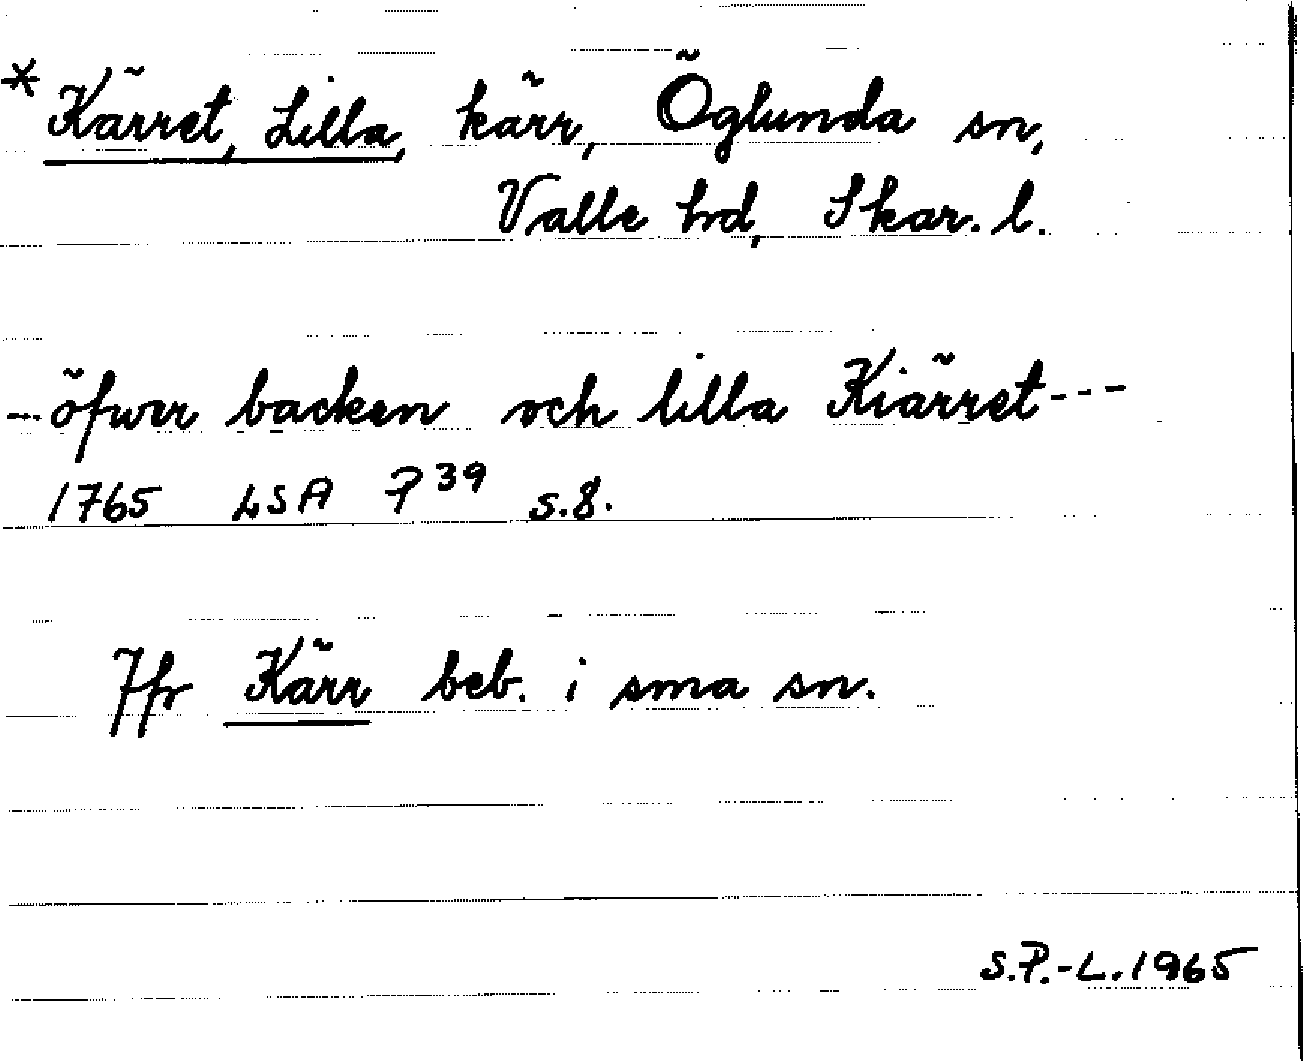 * Kärret, Lilla, kärr, Öglunda sn,
Valle hd, Skar. l.
--- öfwer backen och lilla Kiärret ---
1765 LSA P 39 s. 8.
Jfr Kärr beb. i sma sn.
S.P.-L. 1965